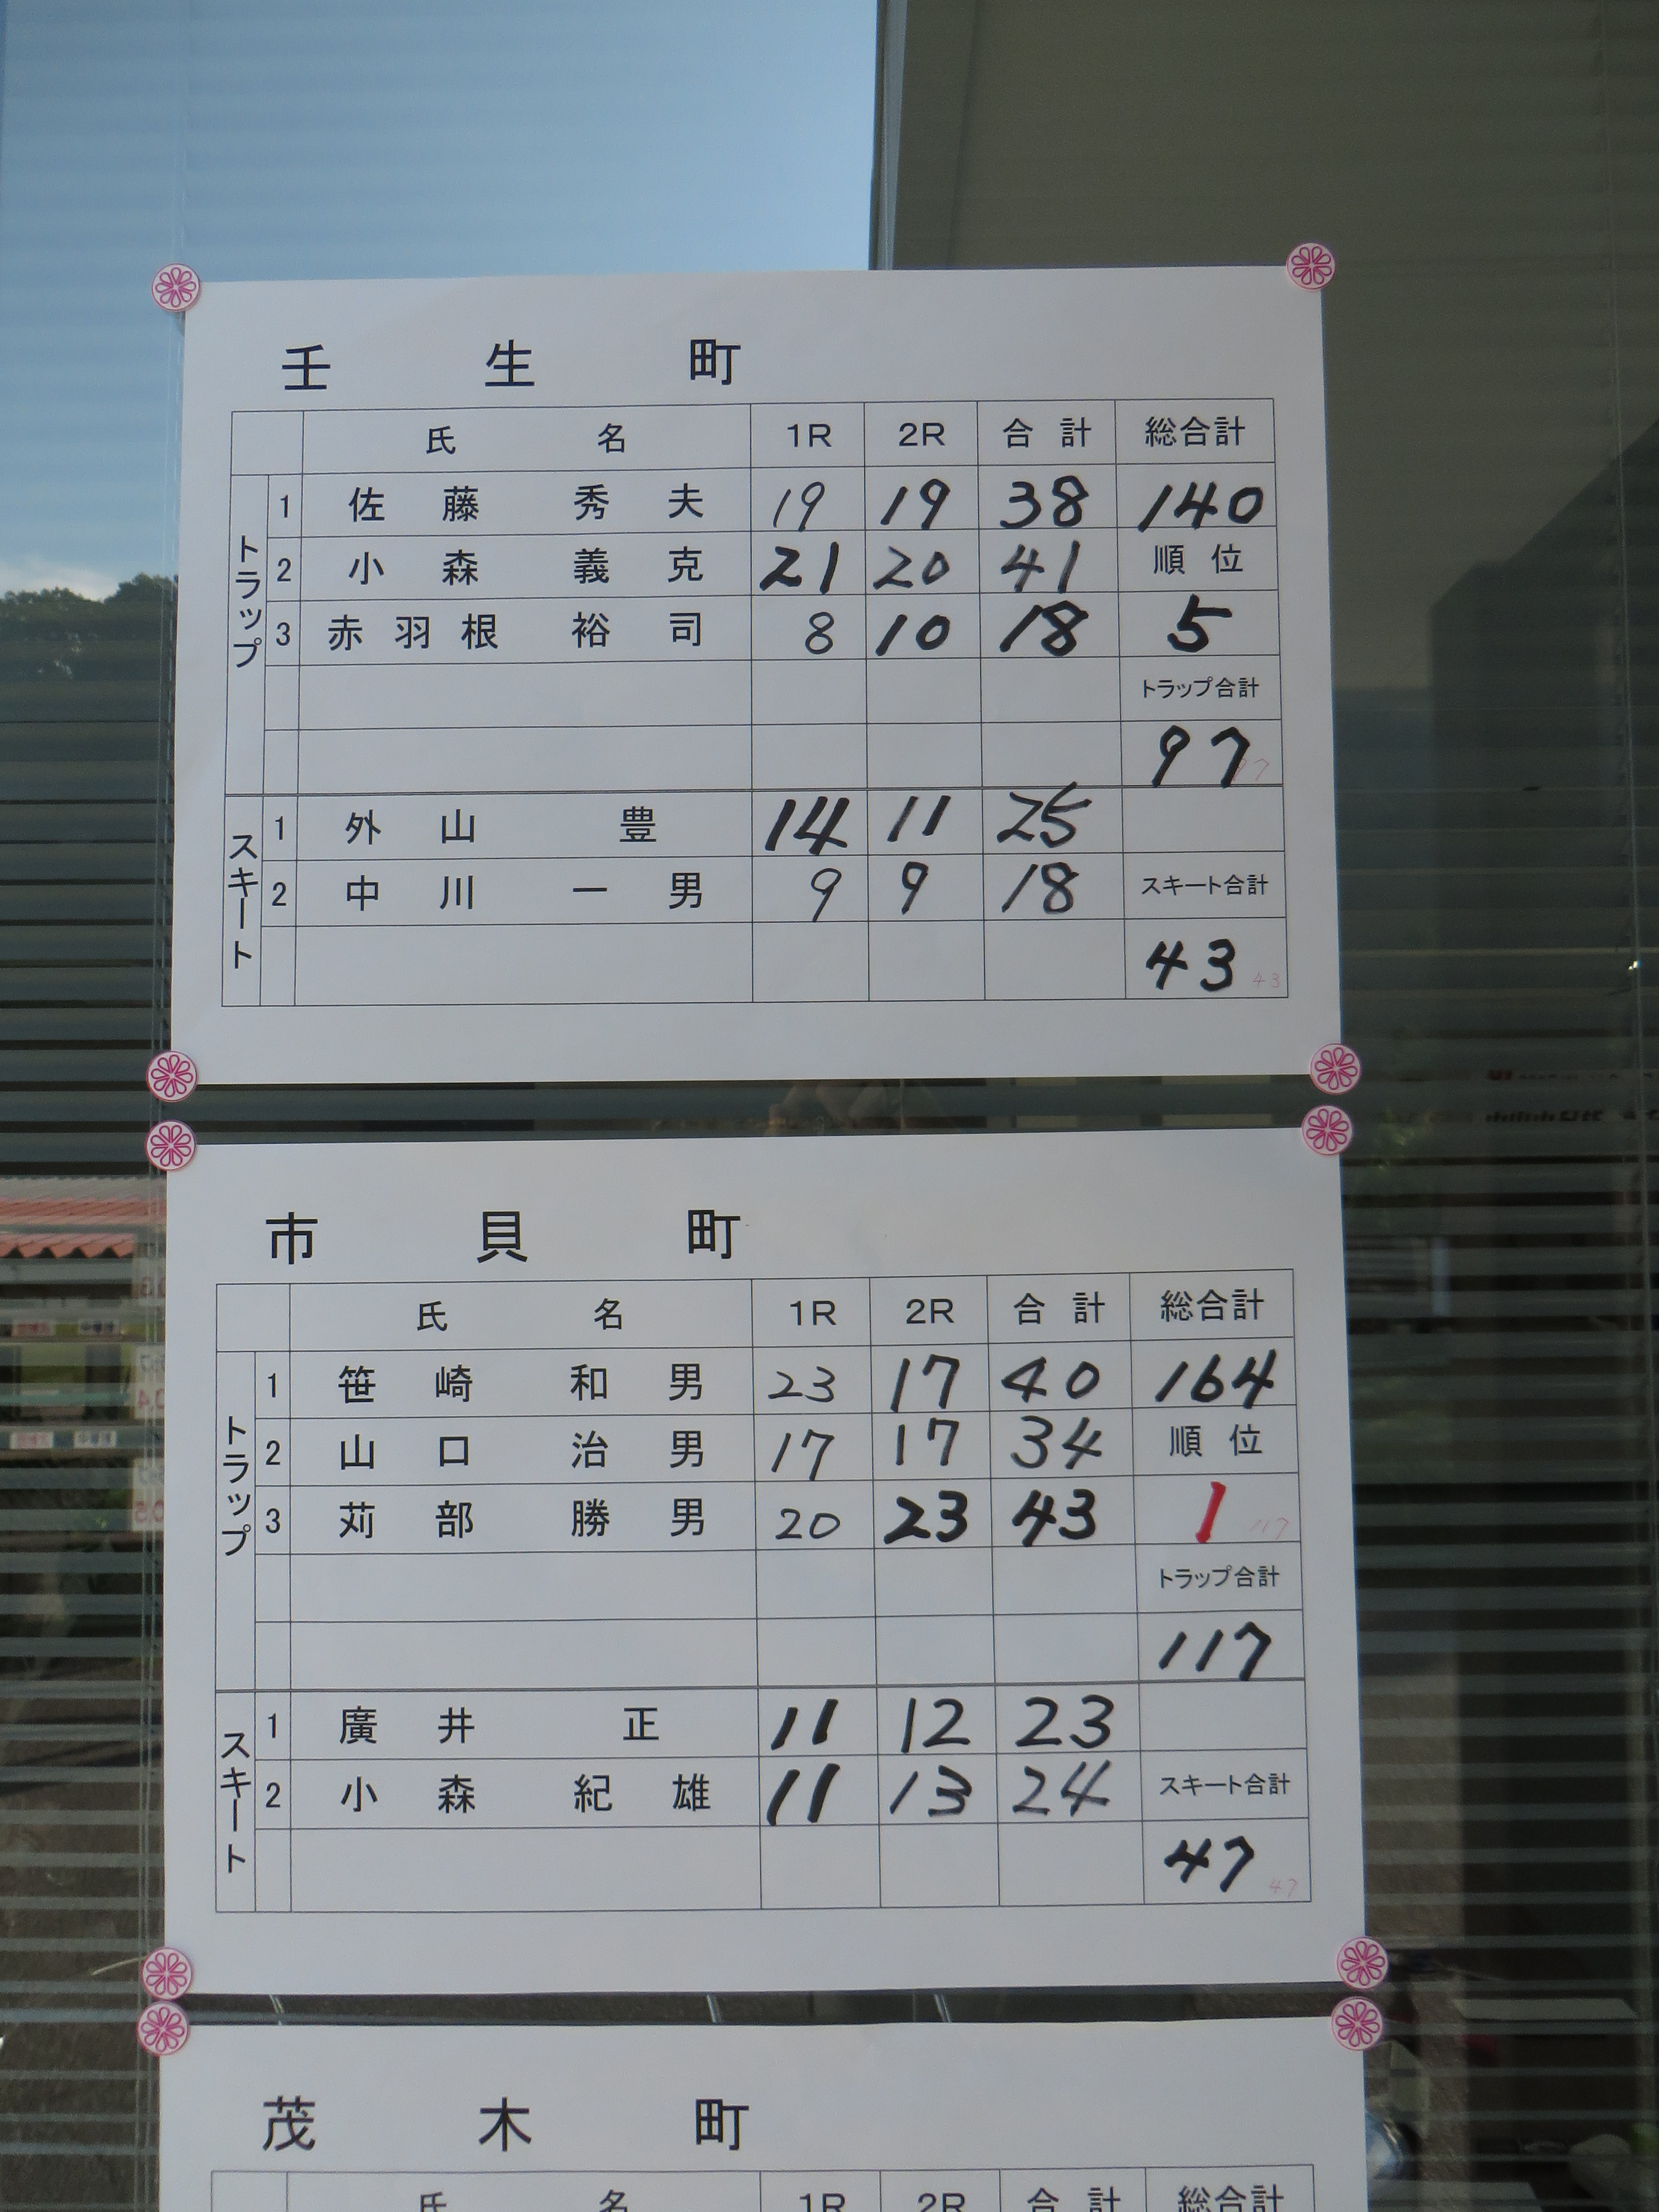 壬生町
氏名 1R 2R 合計 総合計
トラップ
1 佐藤 秀夫 19 19 38 140
2 小森 義克 21 20 41 順位
3 赤羽根 裕司 8 10 18 5
トラップ合計
97
スキート
1 外山 豊 14 11 25
2 中川 一男 9 9 18 スキート合計
43 43
市貝町
氏名 1R 2R 合計 総合計
トラップ
1 笹崎 和男 23 17 40 164
2 山口 治男 17 17 34 順位
3 苅部 勝男 20 23 43 1 117
トラップ合計
117
スキート
1 廣井 正 11 12 23
2 小森 紀雄 11 13 24 スキート合計
47 47
茂木町
氏名 1R 2R 合計 総合計